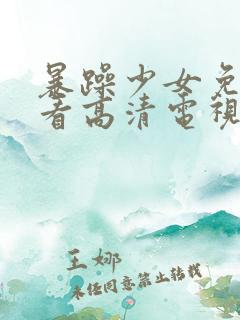 暴躁少女免
看高清電視
王娜
未经同意禁止转载